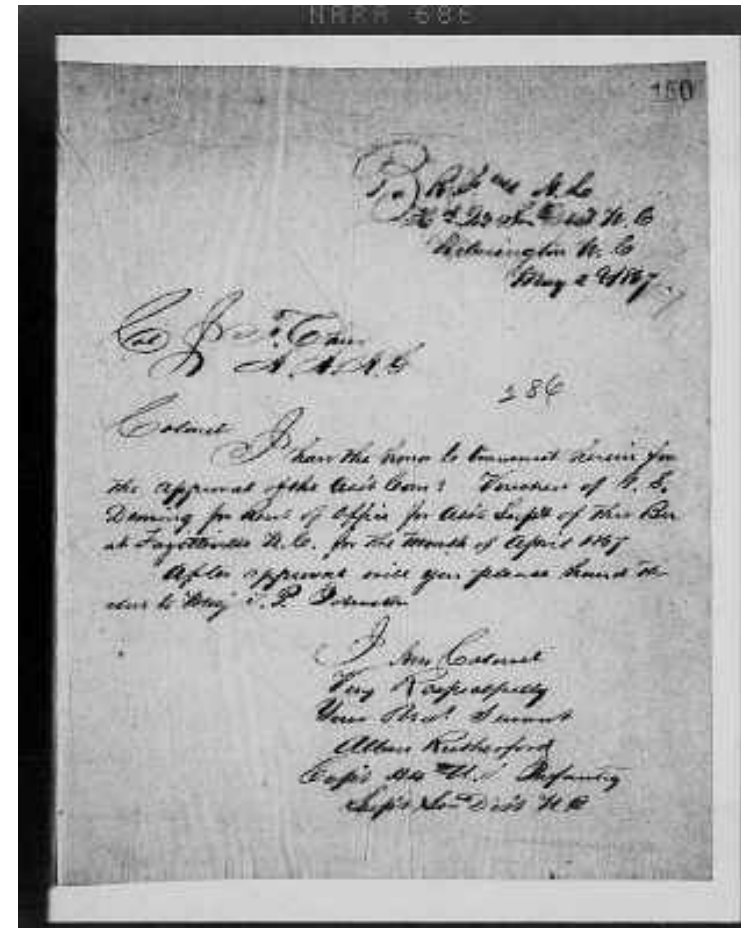 NARA 686
150
B R F & A L
Hd Qrs Sou Dist N. C
Wilmington N. C
May 2 1867
Col J. F.
A. A. A. G
286
Colonel I
have the honor to transmit herein for
the approval of the Ass't Com: Vouchers of
Deming for Rent of Office for Ass't Sup't of this Bu
at Fayetteville N. C. for the Month of April 1867
After approval will you please hand the
to Maj
I Am Colonel
Very Respectfully
Your Obdt Servant
Allan Rutherford
Capt 44 "U. S" Infantry
Sup't Sou Dist N C